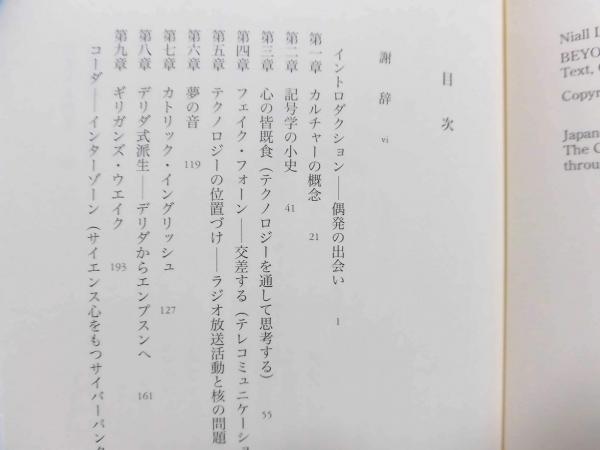 目次
謝辞 vi
イントロダクション——偶発の出会い 1
第一章 カルチャーの概念 21
第二章 記号学の小史 41
第三章 心の皆既食（テクノロジーを通して思考する） 55
第四章 フェイク・フォーン——交差する（テレコミュニケーショ
第五章 テクノロジーの位置づけ——ラジオ放送活動と核の問題
第六章 夢の音 119
第七章 カトリック・イングリッシュ 127
第八章 デリダ式派生——デリダからエンプスンへ 161
第九章 ギリガンズ・ウエイク 193
コーダ——インターゾーン（サイエンス心をもつサイバーパンク
Niall L
BEYO
Text, C
Copyr
Japan
The C
throu